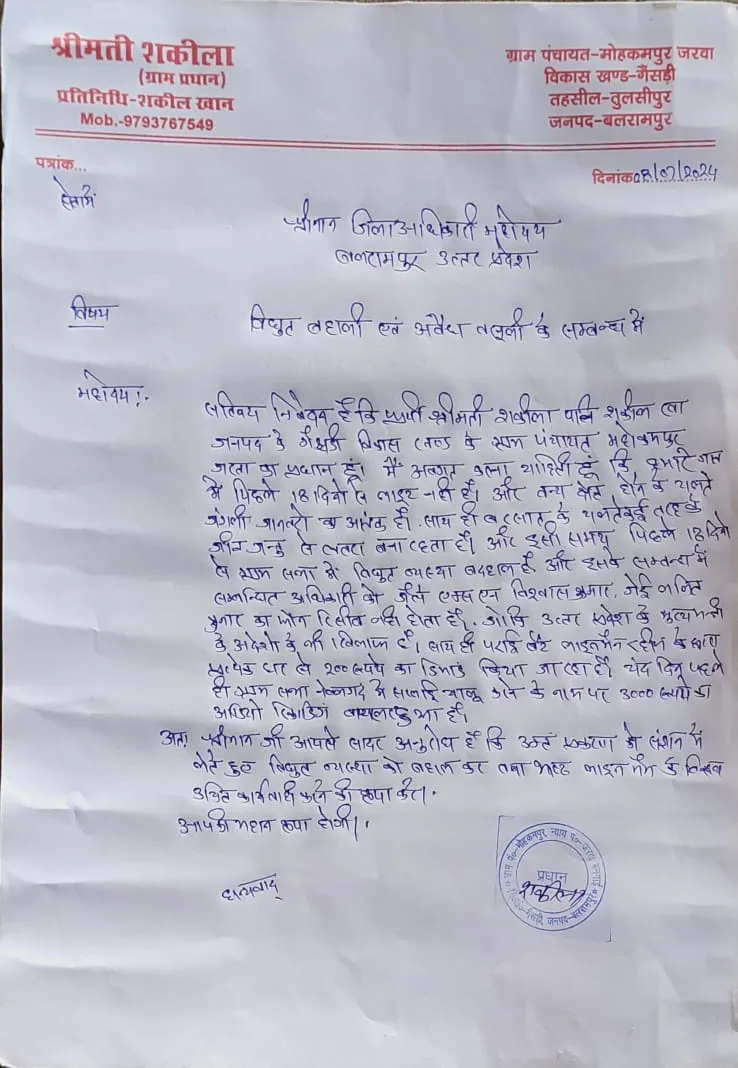 श्रीमती शकीला
(ग्राम प्रधान)
प्रतिनिधि-शकील खान
Mob.-9793767549
ग्राम पंचायत-मोहकमपुर जरवा
विकास खण्ड-गैंसड़ी
तहसील-तुलसीपुर
जनपद-बलरामपुर
पत्रांक...
दिनांक 08/07/2024
सेवामें
श्रीमान जिलाअधिकारी महोदय
बलरामपुर उत्तर प्रदेश
विषय
विद्युत बहाली एवं अवैध वसूली के सम्बन्ध में
महोदय!
सविनय निवेदन है कि प्रार्थी श्रीमती शकीला पत्नि शकील खा
जनपद के गैसडी विकास खण्ड के ग्राम पंचायत मोहकमपुर
जरवा का प्रधान हूं। मैं अवगत कराना चाहिती हूं कि हमारे ग्राम
में पिछले 18 दिनो से लाइट नही है। और वन्य क्षेत्र होने के चलते
जंगली जानवरो का आतंक है। साथ ही बरसात के चलते कई तरह के
जीव जन्तु से खतरा बना रहता है। और इसी समय पिछले 18 दिनो
से ग्राम सभा में विद्युत व्यवस्था बदहाल है और इसके सम्बन्ध में
सम्बन्धित अधिकारी को जैसे एक्स एन विश्वास कुमार, जेई ललित
कुमार का फोन रिसीव नही होता है। जोकि उत्तर प्रदेश के मुख्यमन्त्री
के आदेशो के भी खिलाफ है। साथ ही प्राइवेट लाइनमैन रहीम के द्वारा
प्रत्येक घर से 200 रूपये का डिमांड किया जा रहा है। चंद दिन पहले
ही ग्राम सभा में सप्लाई चालू करने के नाम पर 3000 रूपये का
आडियो रिकार्डिंग वायरल हुआ है।
अतः श्रीमान जी आपसे सादर अनुरोध है कि उक्त प्रकरण को संज्ञान में
लेते हुए विद्युत व्यवस्था को बहाल कर तथा भ्रष्ट लाइन मैन के विरूध
उचित कार्यवाही करने की कृपा करें।
आपकी महान कृपा होगी।
धन्यवाद
प्रधान
शकीला
जनपद-बलरामपुर